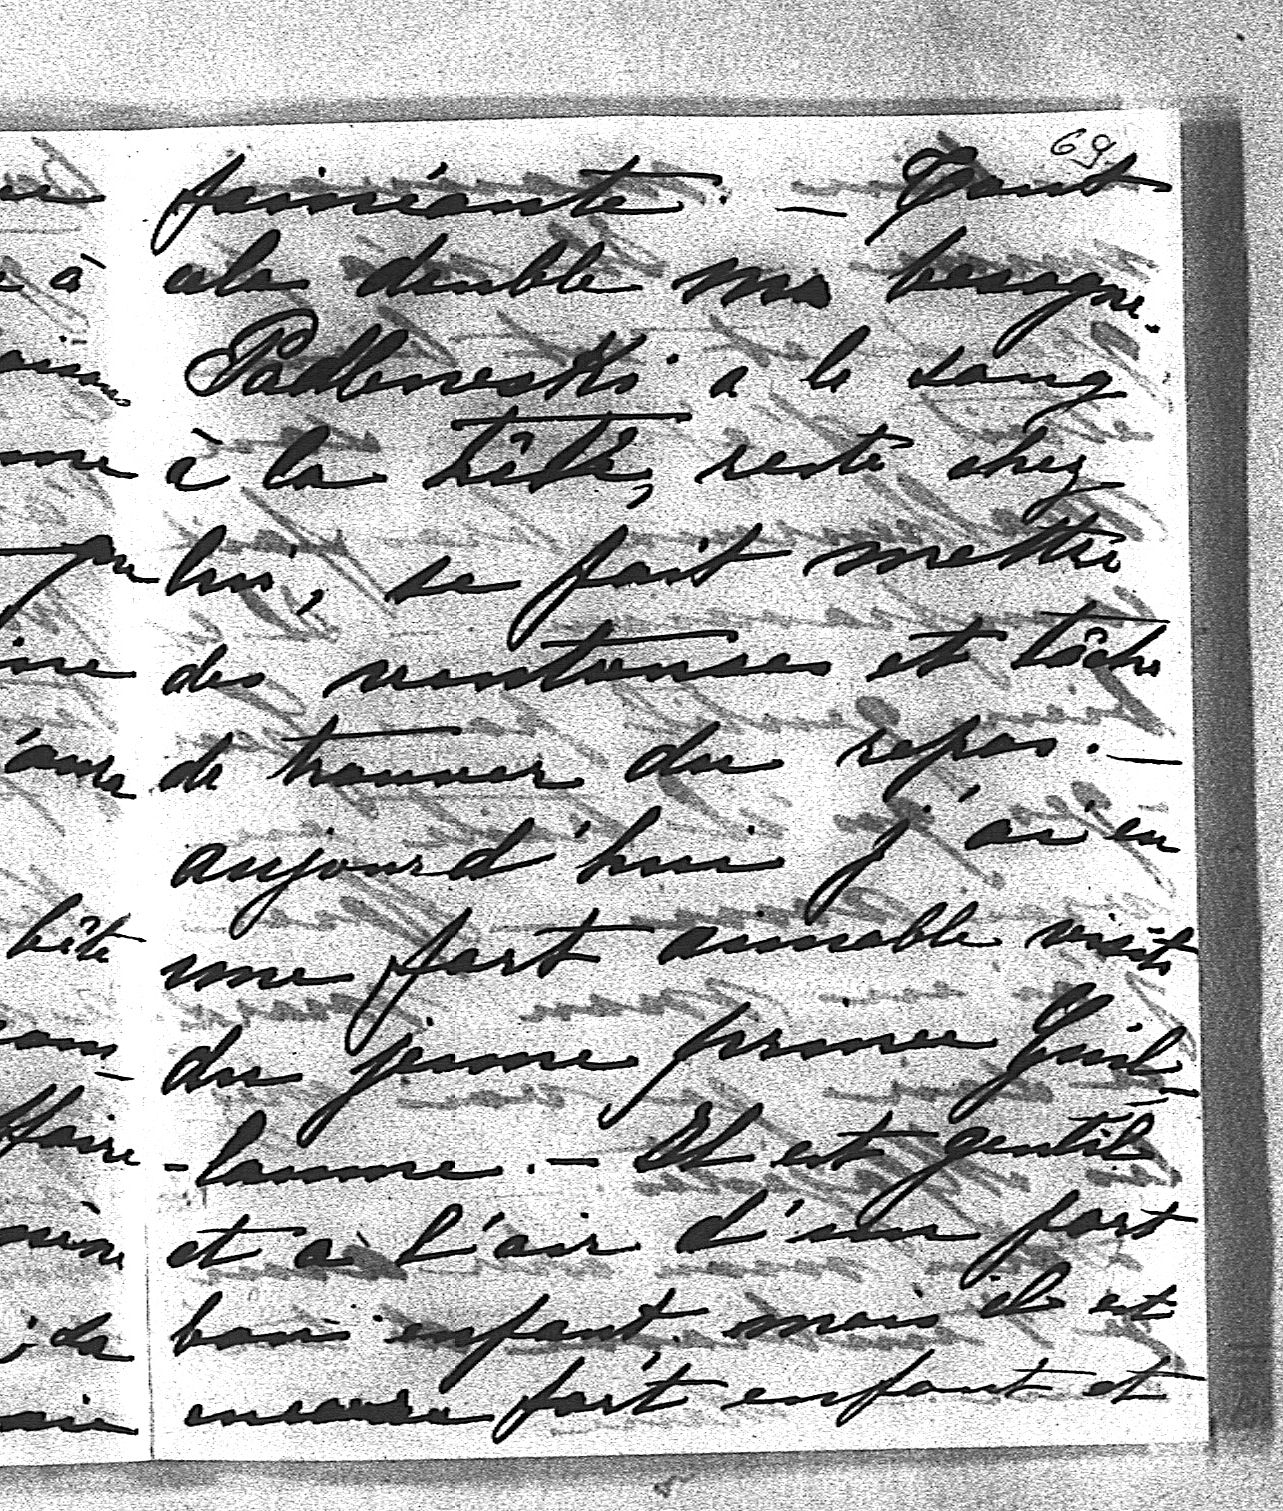 69
fainéante. — Tout
cela double ma besogne.
Padlewski a le sang
à la tête, reste chez
lui, se fait mettre
des ventouses et tâche
de trouver du repos. —
aujourd'hui j'ai eu
une fort aimable visite
du jeune prince Guil-
-laume. — Il est gentil
et a l'air d'un fort
bon enfant. mais il est
encore fort enfant et